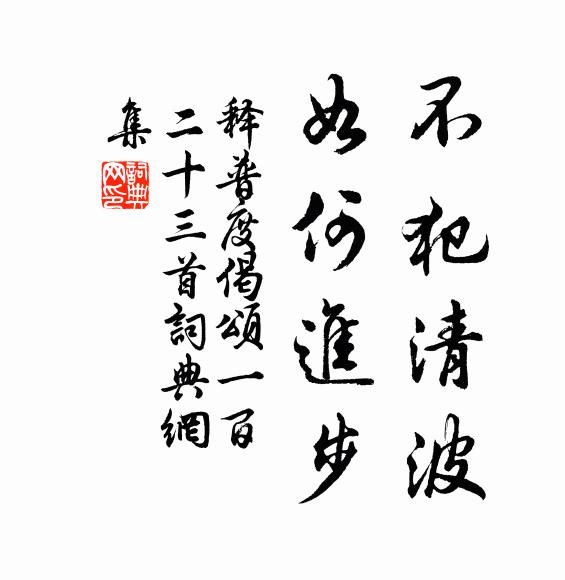 不犯清波
如何進步
釋普度偈頌一百
二十三首詞典網
集
詞典网印